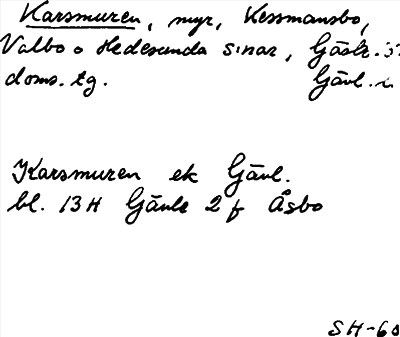 Karsmuren, myr, Kessmansbo,
Valbo o Hedesunda s:nar, Gästr.
doms. tg. Gävl.
Karsmuren ek Gävl.
bl. 13H Gävle 2 f Åsbo
SH-60